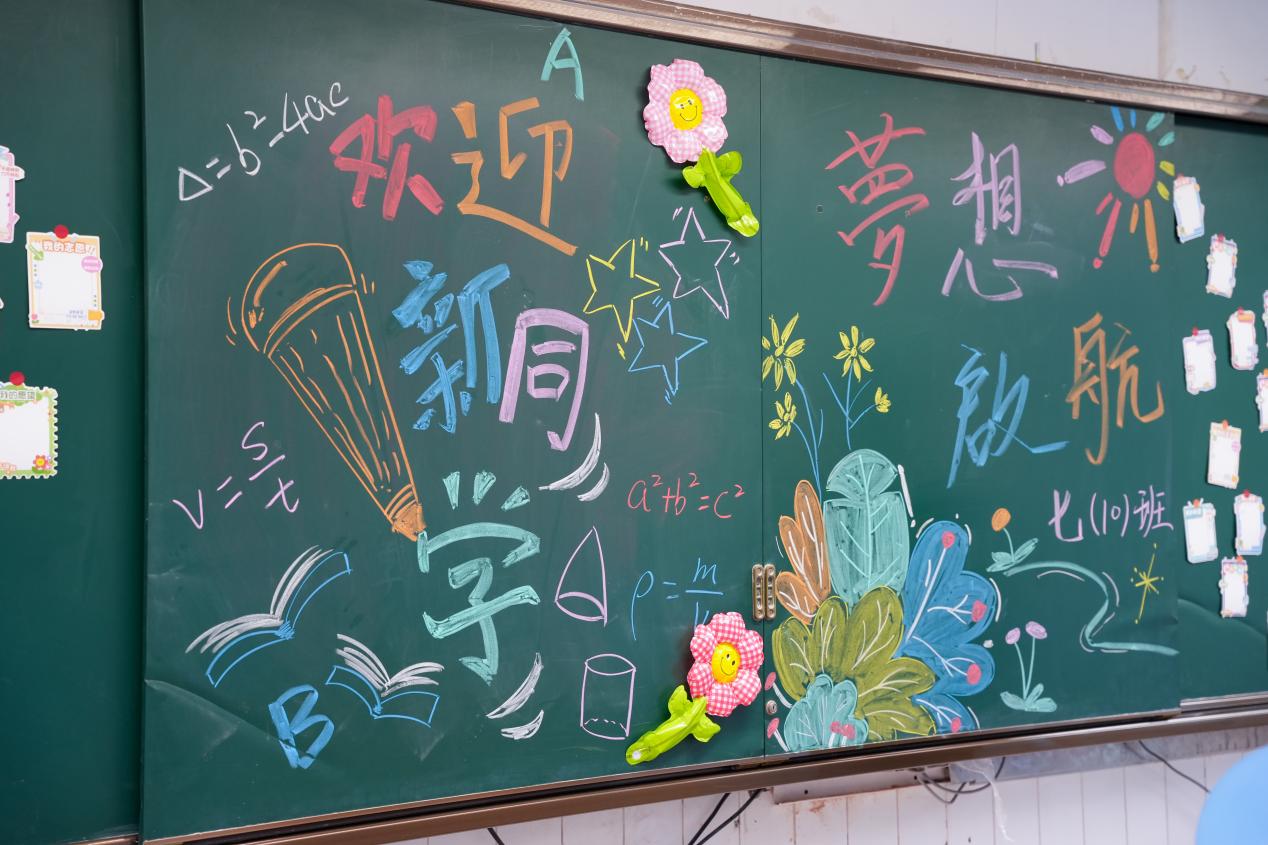 A
Δ=b²-4ac
欢迎
新同
学
V=s/t
a²+b²=c²
B
夢想
啟航
七(10)班
我的志愿
我的愿望